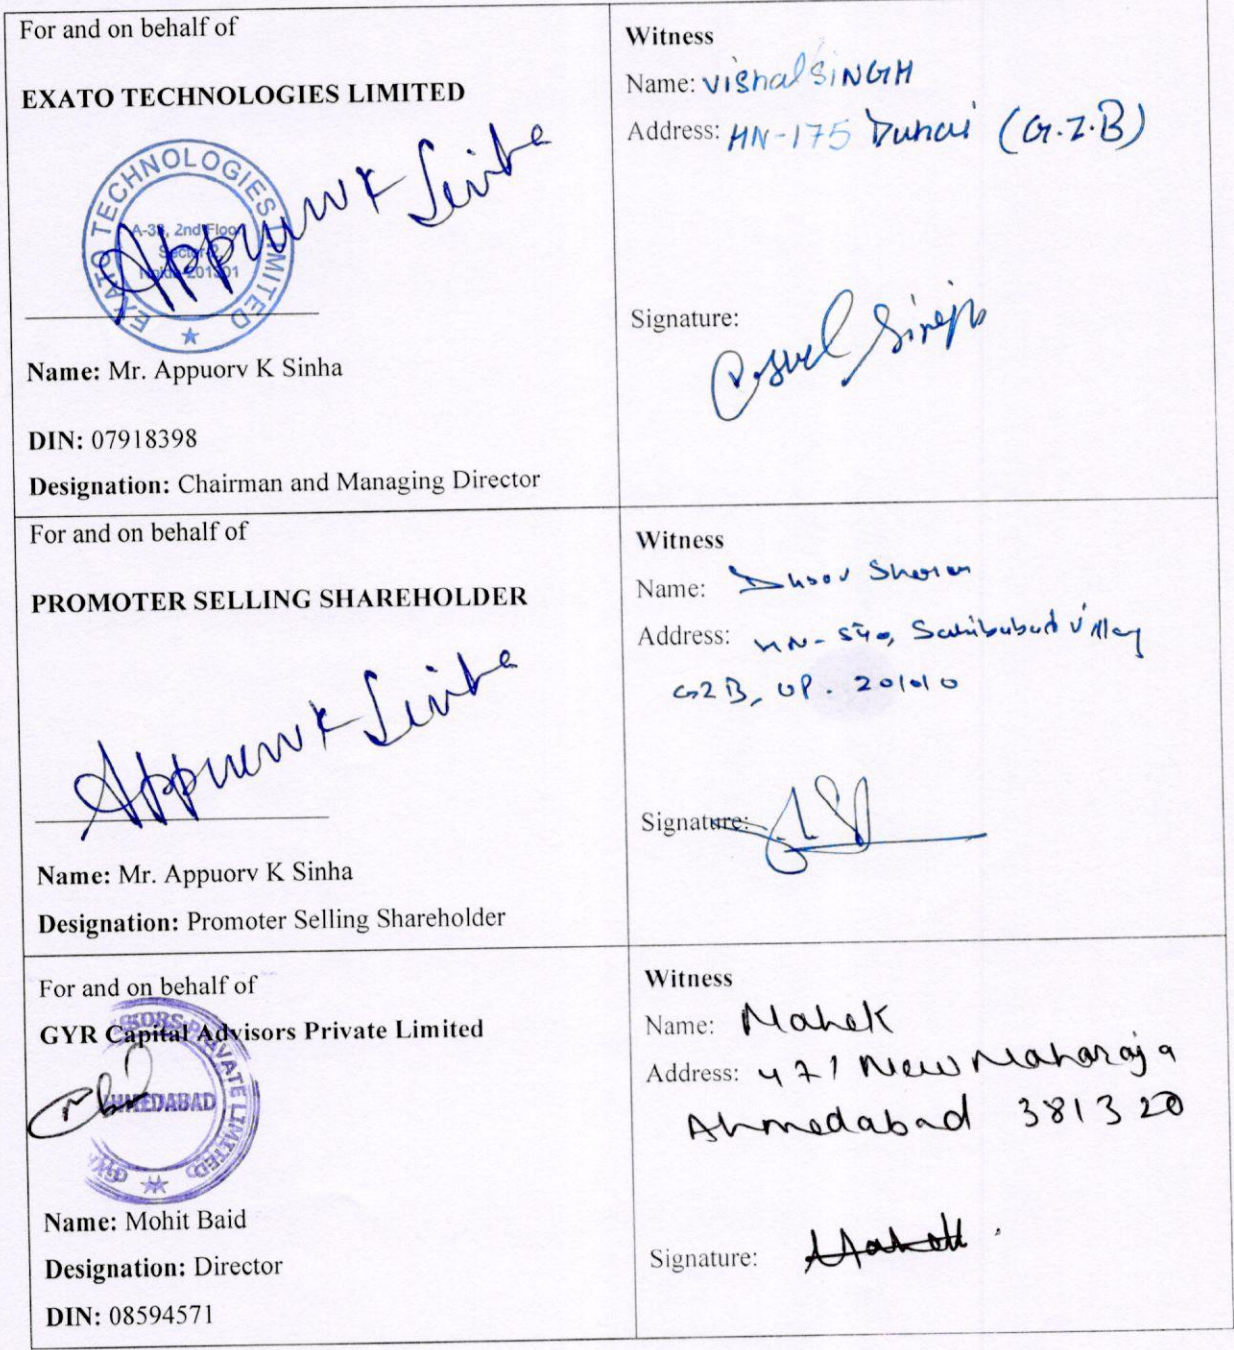 For and on behalf of
EXATO TECHNOLOGIES LIMITED
EXATO TECHNOLOGIES LIMITED
A-33, 2nd Floor
Sector-2,
Noida-201301
Name: Mr. Appuorv K Sinha
DIN: 07918398
Designation: Chairman and Managing Director
Witness
Name: Vishal SINGH
Address: HN-175 Duhai (G.Z.B)
Signature:
For and on behalf of
PROMOTER SELLING SHAREHOLDER
Name: Mr. Appuorv K Sinha
Designation: Promoter Selling Shareholder
Witness
Name:
Address: HN-540, Sahibabad Village
GZB, UP. 201010
Signature:
For and on behalf of
GYR Capital Advisors Private Limited
PRIVATE LIMITED
AHMEDABAD
Name: Mohit Baid
Designation: Director
DIN: 08594571
Witness
Name: Mahek
Address: 471 New Maharaja
Ahmedabad 381320
Signature: Mahek